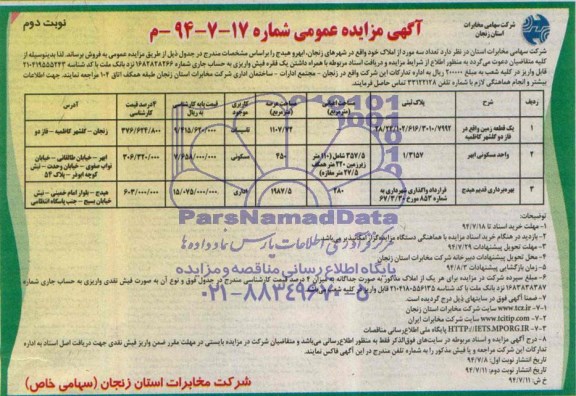 شرکت سهامی مخابرات
استان زنجان
آگهی مزایده عمومی شماره ۱۷-۷-۹۴-م
نوبت دوم
شرکت سهامی مخابرات استان زنجان در نظر دارد تعداد سه مورد از املاک خود واقع در شهرهای زنجان، ابهر و هیدج را براساس مشخصات مندرج در جدول ذیل از طریق مزایده عمومی به فروش برساند. لذا بدینوسیله از
کلیه متقاضیان دعوت می‌گردد به منظور اطلاع از شرایط مزایده و دریافت اسناد مربوطه با همراه داشتن یک فقره فیش واریزی به حساب جاری شماره ۱۶۸۲۸۲۸۲۶۶ نزد بانک ملت با کد شناسه ۲۱۰۴۱۹۵۵۵۲۶۳
قابل واریز در کلیه شعب به مبلغ ۲۰۰۰۰۰ ریال به اداره تدارکات این شرکت واقع در زنجان - مجتمع ادارات - ساختمان اداری شرکت مخابرات استان زنجان طبقه همکف اتاق ۱۰۴ مراجعه نمایند. جهت اطلاعات
بیشتر و انجام هماهنگی لازم با شماره تلفن ۳۳۱۲۲۱۲۸ تماس حاصل فرمایید.
ردیف شرح پلاک ثبتی مساحت اعیانی (مترمربع) مساحت عرصه (مترمربع) کاربری موجود قیمت پایه کارشناسی به ریال ۴درصد قیمت کارشناسی آدرس
۱ یک قطعه زمین واقع در فاز دو گلشهر کاظمیه ۲۸/۲۲/۱۰۲/۶۱۶/۳۰۱۰/۷۹۹۲ ۱۱۰۷/۷۴ تاسیسات ۹/۴۱۵/۶۲۰/۰۰۰ ۳۷۶/۶۲۴/۸۰۰ زنجان - گلشهر کاظمیه - فاز دو
۲ واحد مسکونی ابهر ۱/۳۱۵۷ ۳۵۷/۵ شامل (۱۱۰ متر زیرزمین ۲۲۰ متر همکف ۲۷/۵ متر مغازه) ۴۵۰ مسکونی ۷/۶۵۸/۰۰۰/۰۰۰ ۳۰۶/۳۲۰/۰۰۰ ابهر - خیابان طالقانی - خیابان نواب صفوی - خیابان وحدت - نبش کوچه ابوذر - پلاک ۵۴
۳ بهره‌برداری قدیم هیدج قرارداد واگذاری شهرداری به شماره ۸۵۳ مورخ ۶۷/۳/۳۰ ۲۸۰ ۱۹۸۷/۵ اداری ۱۵/۰۷۵/۰۰۰/۰۰۰ ۶۰۳/۰۰۰/۰۰۰ هیدج - بلوار امام خمینی - نبش خیابان بسیج - جنب پاسگاه انتظامی
ParsNamadData
مرکز فرآوری اطلاعات پارس نماد داده ها
پایگاه اطلاع رسانی مناقصه و مزایده
۰۲۱-۸۸۳۴۹۶۷۰-۵
توضیحات:
۱- مهلت خرید اسناد تا ۹۴/۷/۱۸
۲- بازدید در هنگام خرید اسناد مزایده با هماهنگی دستگاه مزایده‌گزار امکانپذیر می‌باشد.
۳- مهلت تحویل پیشنهادات ۹۴/۷/۲۹
۴- محل تحویل پیشنهادات دبیرخانه شرکت مخابرات استان زنجان
۵- زمان بازگشایی پیشنهادات ۹۴/۸/۲
۶- مبلغ سپرده شرکت در مزایده برای هر یک از املاک مذکور به صورت جداگانه به میزان ۴ درصد قیمت کارشناسی مندرج در جدول فوق و نوع آن به صورت فیش نقدی واریزی به حساب جاری شماره
نزد بانک ملت با کد شناسه قابل واریز در کلیه شعب
۷- ضمنا آگهی فوق در سایتهای ذیل درج گردیده است.
www.tcz.ir سایت شرکت مخابرات استان زنجان
www.tcitip.com سایت شرکت مخابرات ایران
۷-۳ HTTP://IETS.MPORG.IR پایگاه ملی اطلاع‌رسانی مناقصات
۸- درج آگهی مزایده و اسناد مربوطه در سایت‌های فوق‌الذکر فقط به منظور اطلاع‌رسانی می‌باشد و متقاضیان شرکت در مزایده بایستی در مهلت مقرر ضمن واریز فیش نقدی جهت دریافت اصل اسناد به اداره
تدارکات این شرکت مراجعه و یا فیش مذکور را به شماره تلفن مندرج در این آگهی فاکس نمایند.
تاریخ انتشار نوبت اول: ۹۴/۷/۸
تاریخ انتشار نوبت دوم: ۹۴/۷/۱۱
خ ش: ۹۴/۷/۱۱
شرکت مخابرات استان زنجان (سهامی خاص)